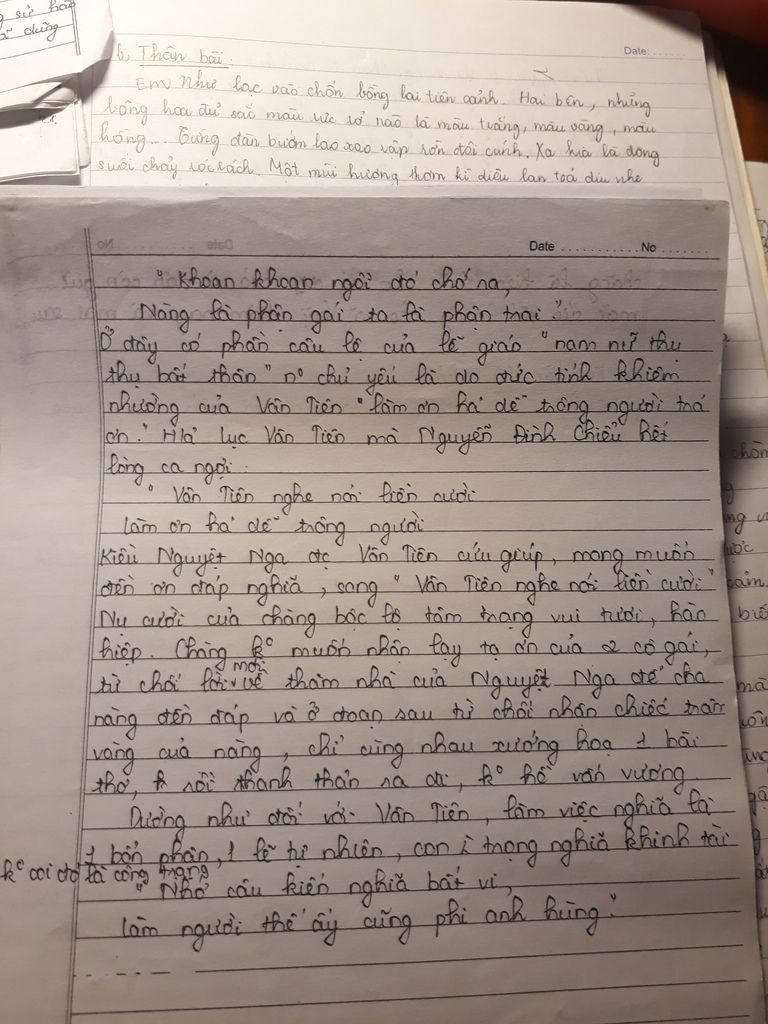 g sử hào
ã dũng
b, Thân bài :
Date: ......
Em như lạc vào chốn bồng lai tiên cảnh. Hai bên, những
bông hoa đủ sắc màu rực rỡ nào là màu trắng, màu vàng, màu
hồng... Từng đàn bướm lao xao rập rờn đôi cánh. Xa kia là dòng
suối chảy róc rách. Một mùi hương thơm kì diệu lan toả dịu nhẹ
Date ............ No .......
" Khoan khoan ngồi đó chớ ra,
Nàng là phận gái ta là phận trai "
Ở đây có phần câu lệ của lễ giáo " nam nữ thụ
thụ bất thân " nº chủ yếu là do đức tính khiêm
nhường của Vân Tiên " làm ơn há dễ trông người trả
ơn." Hả lục Vân Tiên mà Nguyễn Đình Chiểu hết
lòng ca ngợi :
" Vân Tiên nghe nói liền cười
Làm ơn há dễ trông người
Kiều Nguyệt Nga đc Vân Tiên cứu giúp, mong muốn
đền ơn đáp nghĩa, song " Vân Tiên nghe nói liền cười "
Nụ cười của chàng bộc lộ tâm trạng vui tươi, hào
hiệp. Chàng kº muốn nhận lạy tạ ơn của 2 cô gái,
từ chối lời mời về thăm nhà của Nguyệt Nga để cha
nàng đền đáp và ở đoạn sau từ chối nhận chiếc trâm
vàng của nàng, chỉ cùng nhau xướng hoạ 1 bài
thơ, rồi thanh thản ra đi, kº hề vấn vương.
Dường như đối với Vân Tiên, làm việc nghĩa là
1 bổn phận, 1 lẽ tự nhiên, con trọng nghĩa khinh tài
kº coi đó là công trạng
" Nhớ câu kiến nghĩa bất vi,
Làm người thế ấy cũng phi anh hùng."